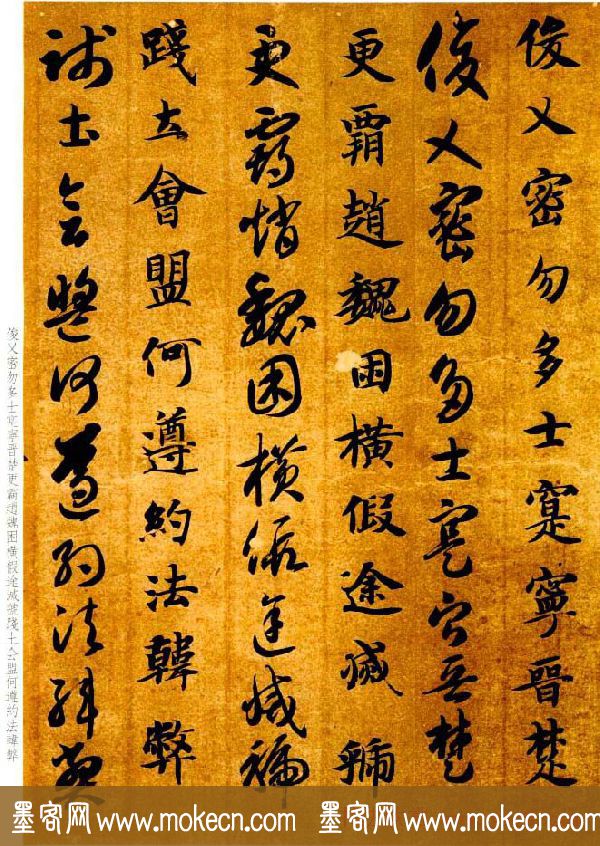 俊乂密勿多士寔寧晉楚
俊乂密勿多士寔寧晉楚
更霸趙魏困橫假途滅虢
更霸趙魏困橫假途滅虢
踐土會盟何遵約法韓弊
踐土會盟何遵約法韓弊
俊乂密勿多士寔寧晉楚更霸趙魏困橫假途滅虢踐土会盟何遵約法韓弊
墨客网 www.mokecn.com 墨客网 www.mokecn.com